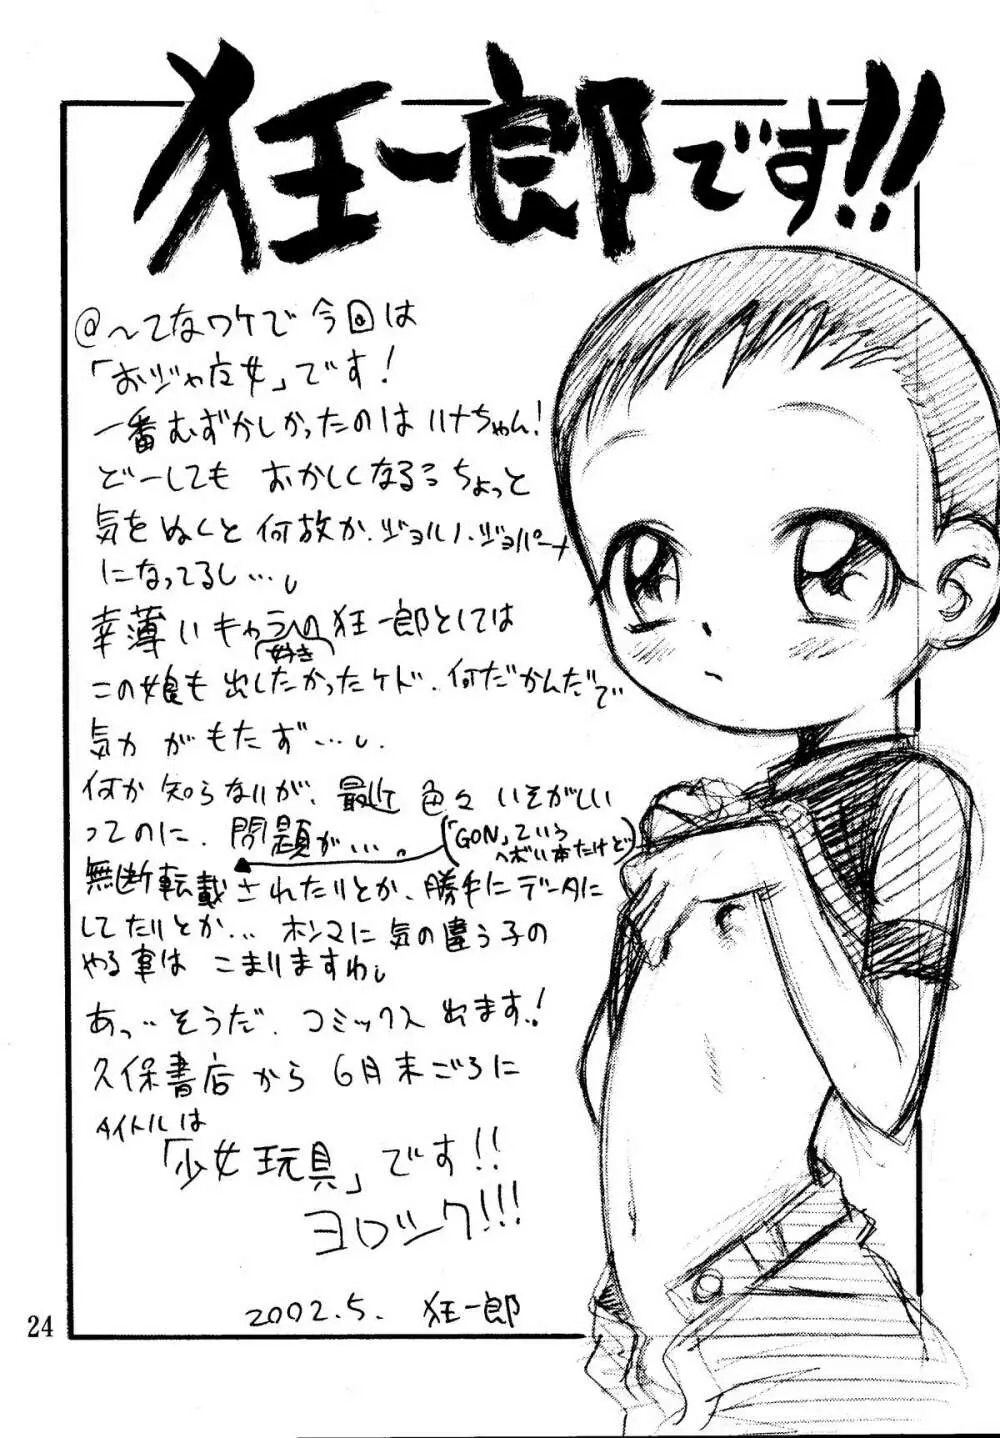 狂一郎です!!
@〜てなワケで今回は
「おジャ魔女」です!
一番むずかしかったのはハナちゃん!
どーしてもおかしくなる。ちょっと
気をぬくと何故か、ジョルノ・ジョバーナ
になってるし…。
幸薄いキャラへの狂一郎としては
好き
この娘も出したかったケド、何だかんだで
気力がもたず…。
何か知らないが、最近色々いそがしい
ってのに、問題が…。
(「GON」ていうヘボい本だけど)
無断転載されたりとか、勝手にデータに
してたりとか…ホンマに気の違う子の
やる事はこまりますわ。
あっ…そうだ、コミックス出ます!
久保書店から6月末ごろに
タイトルは
「少女玩具」です!!
ヨロシク!!!
2002.5. 狂一郎
24